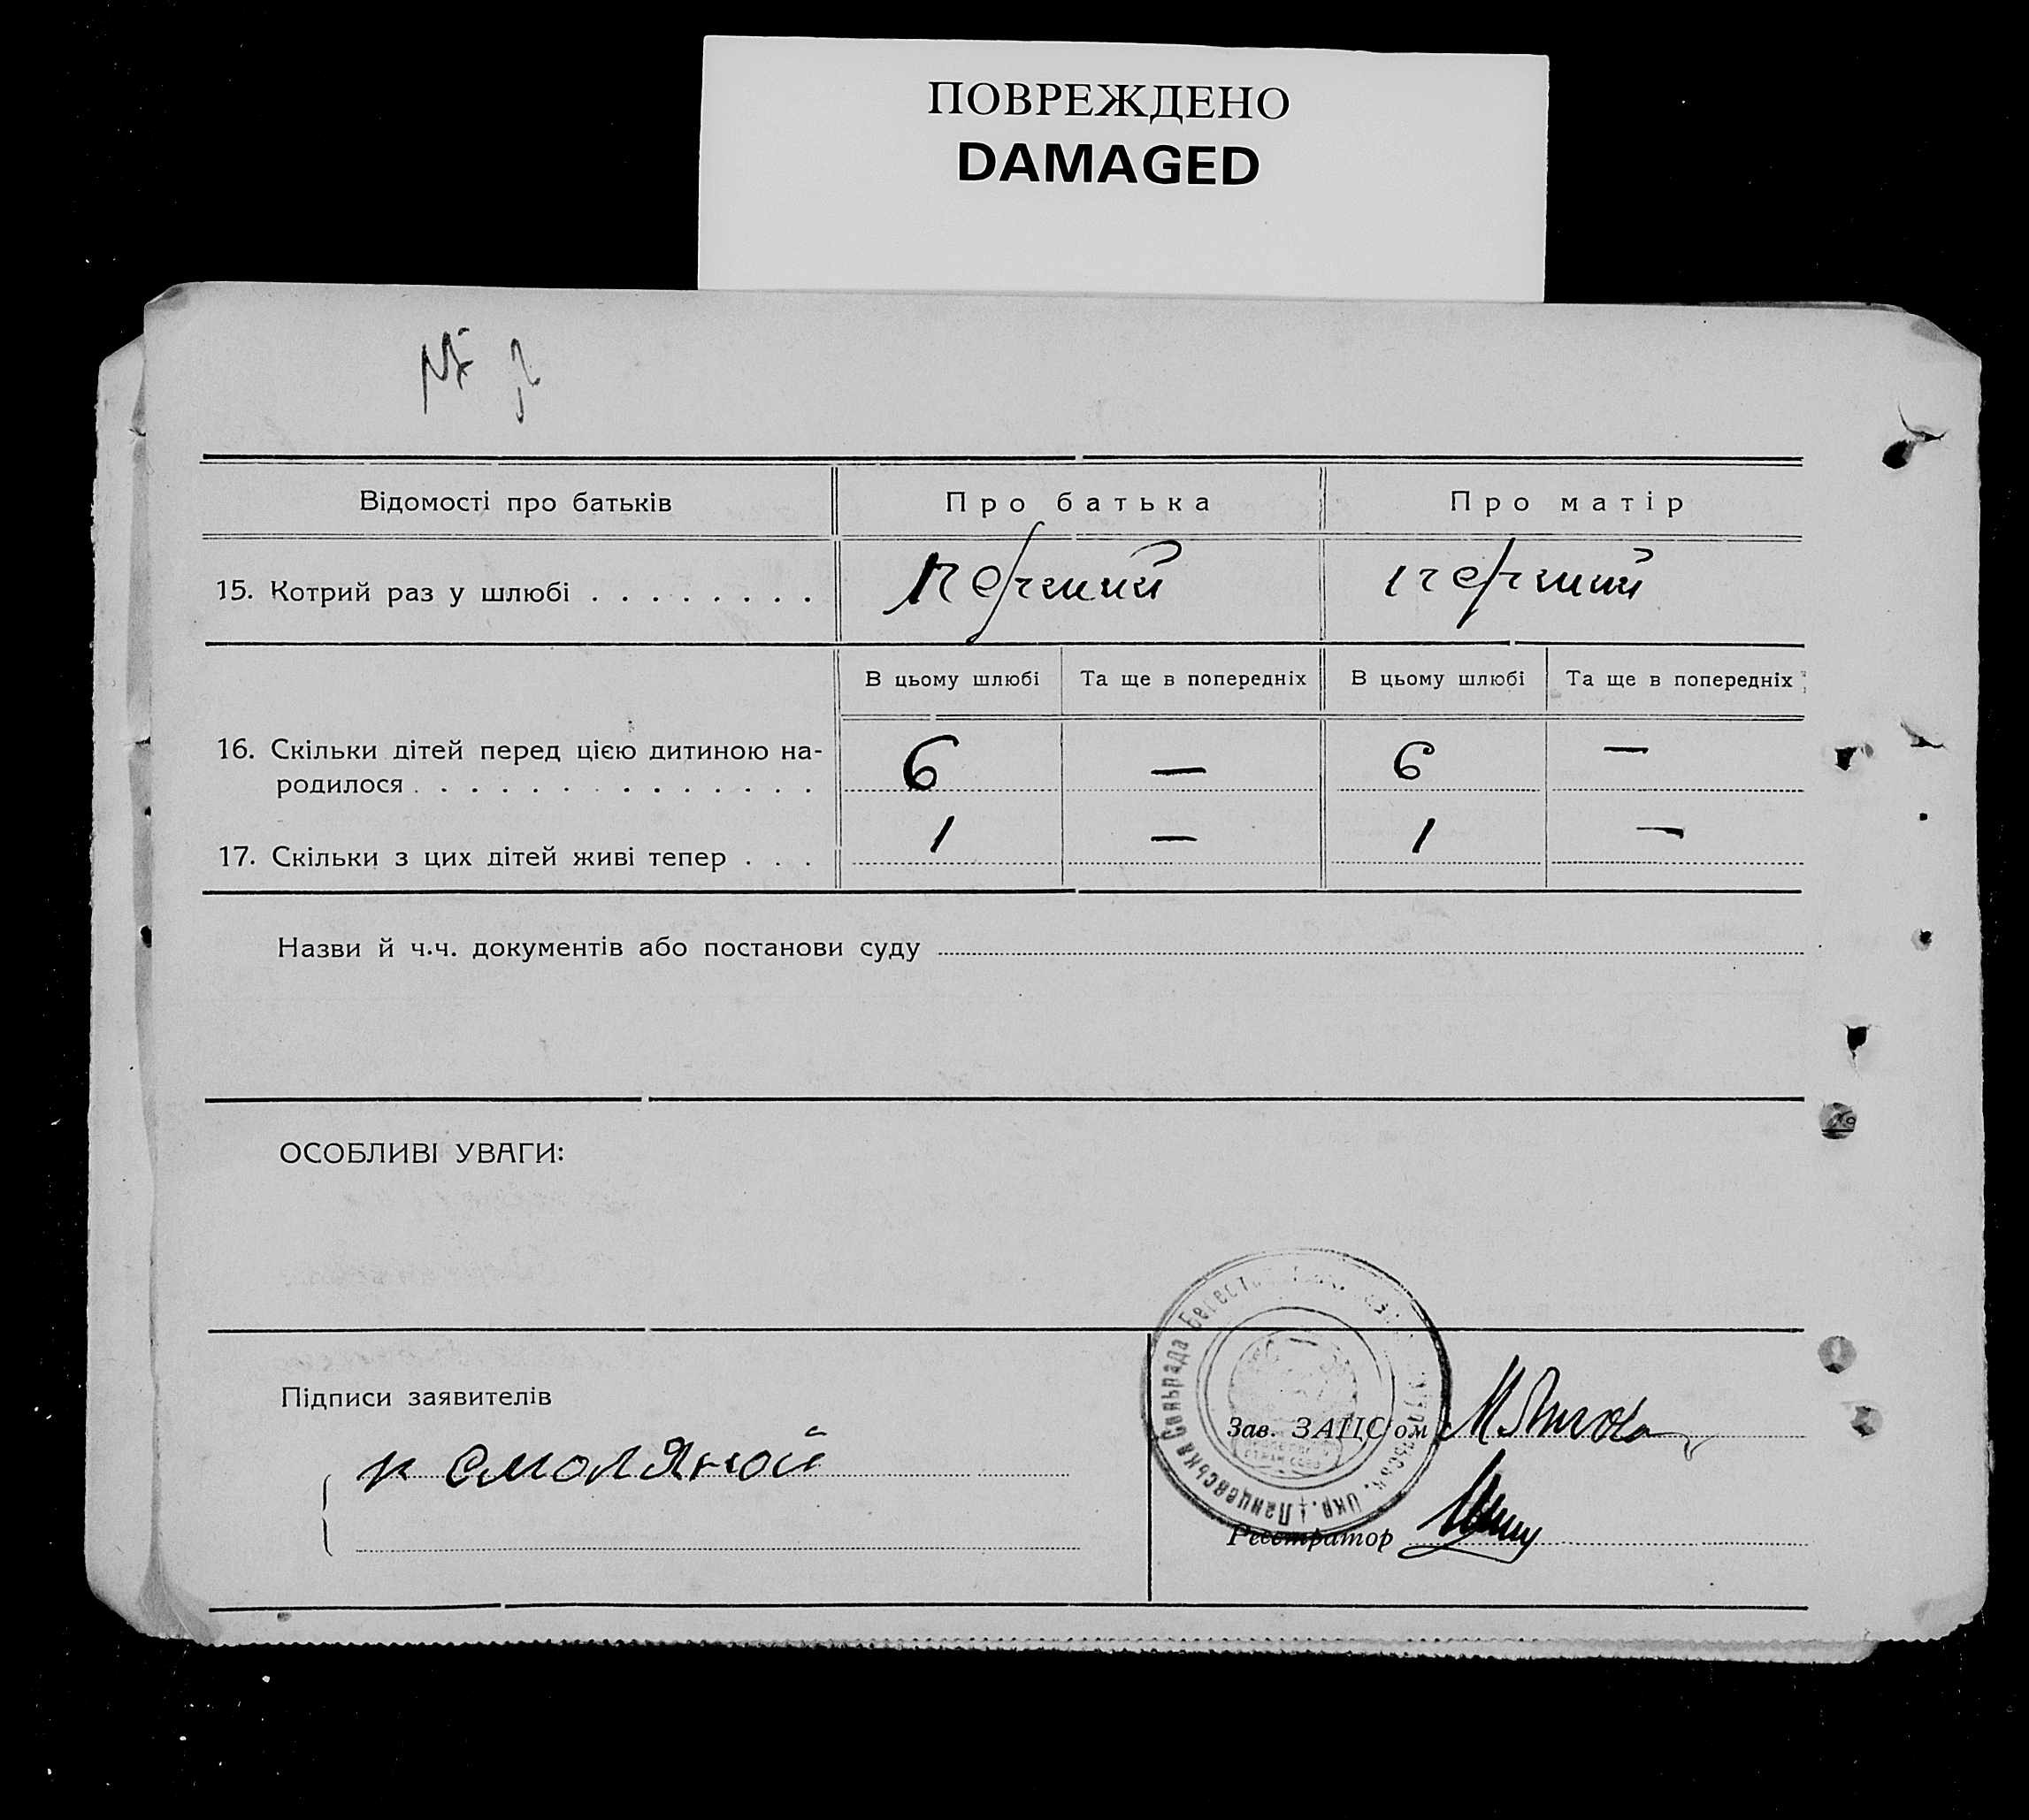 ПОВРЕЖДЕНО
DAMAGED
№
Відомості про батьків Про батька Про матір
15. Котрий раз у шлюбі . . . . . . . . перший перший
В цьому шлюбі Та ще в попередніх В цьому шлюбі Та ще в попередніх
16. Скільки дітей перед цією дитиною на-
родилося . . . . . . . . . . . . . . 6 — 6 —
17. Скільки з цих дітей живі тепер . . . 1 — 1 —
Назви й ч.ч. документів або постанови суду
ОСОБЛИВІ УВАГИ:
Підписи заявителів
Зав. ЗАЦС'ом
смоляной
Реєстратор